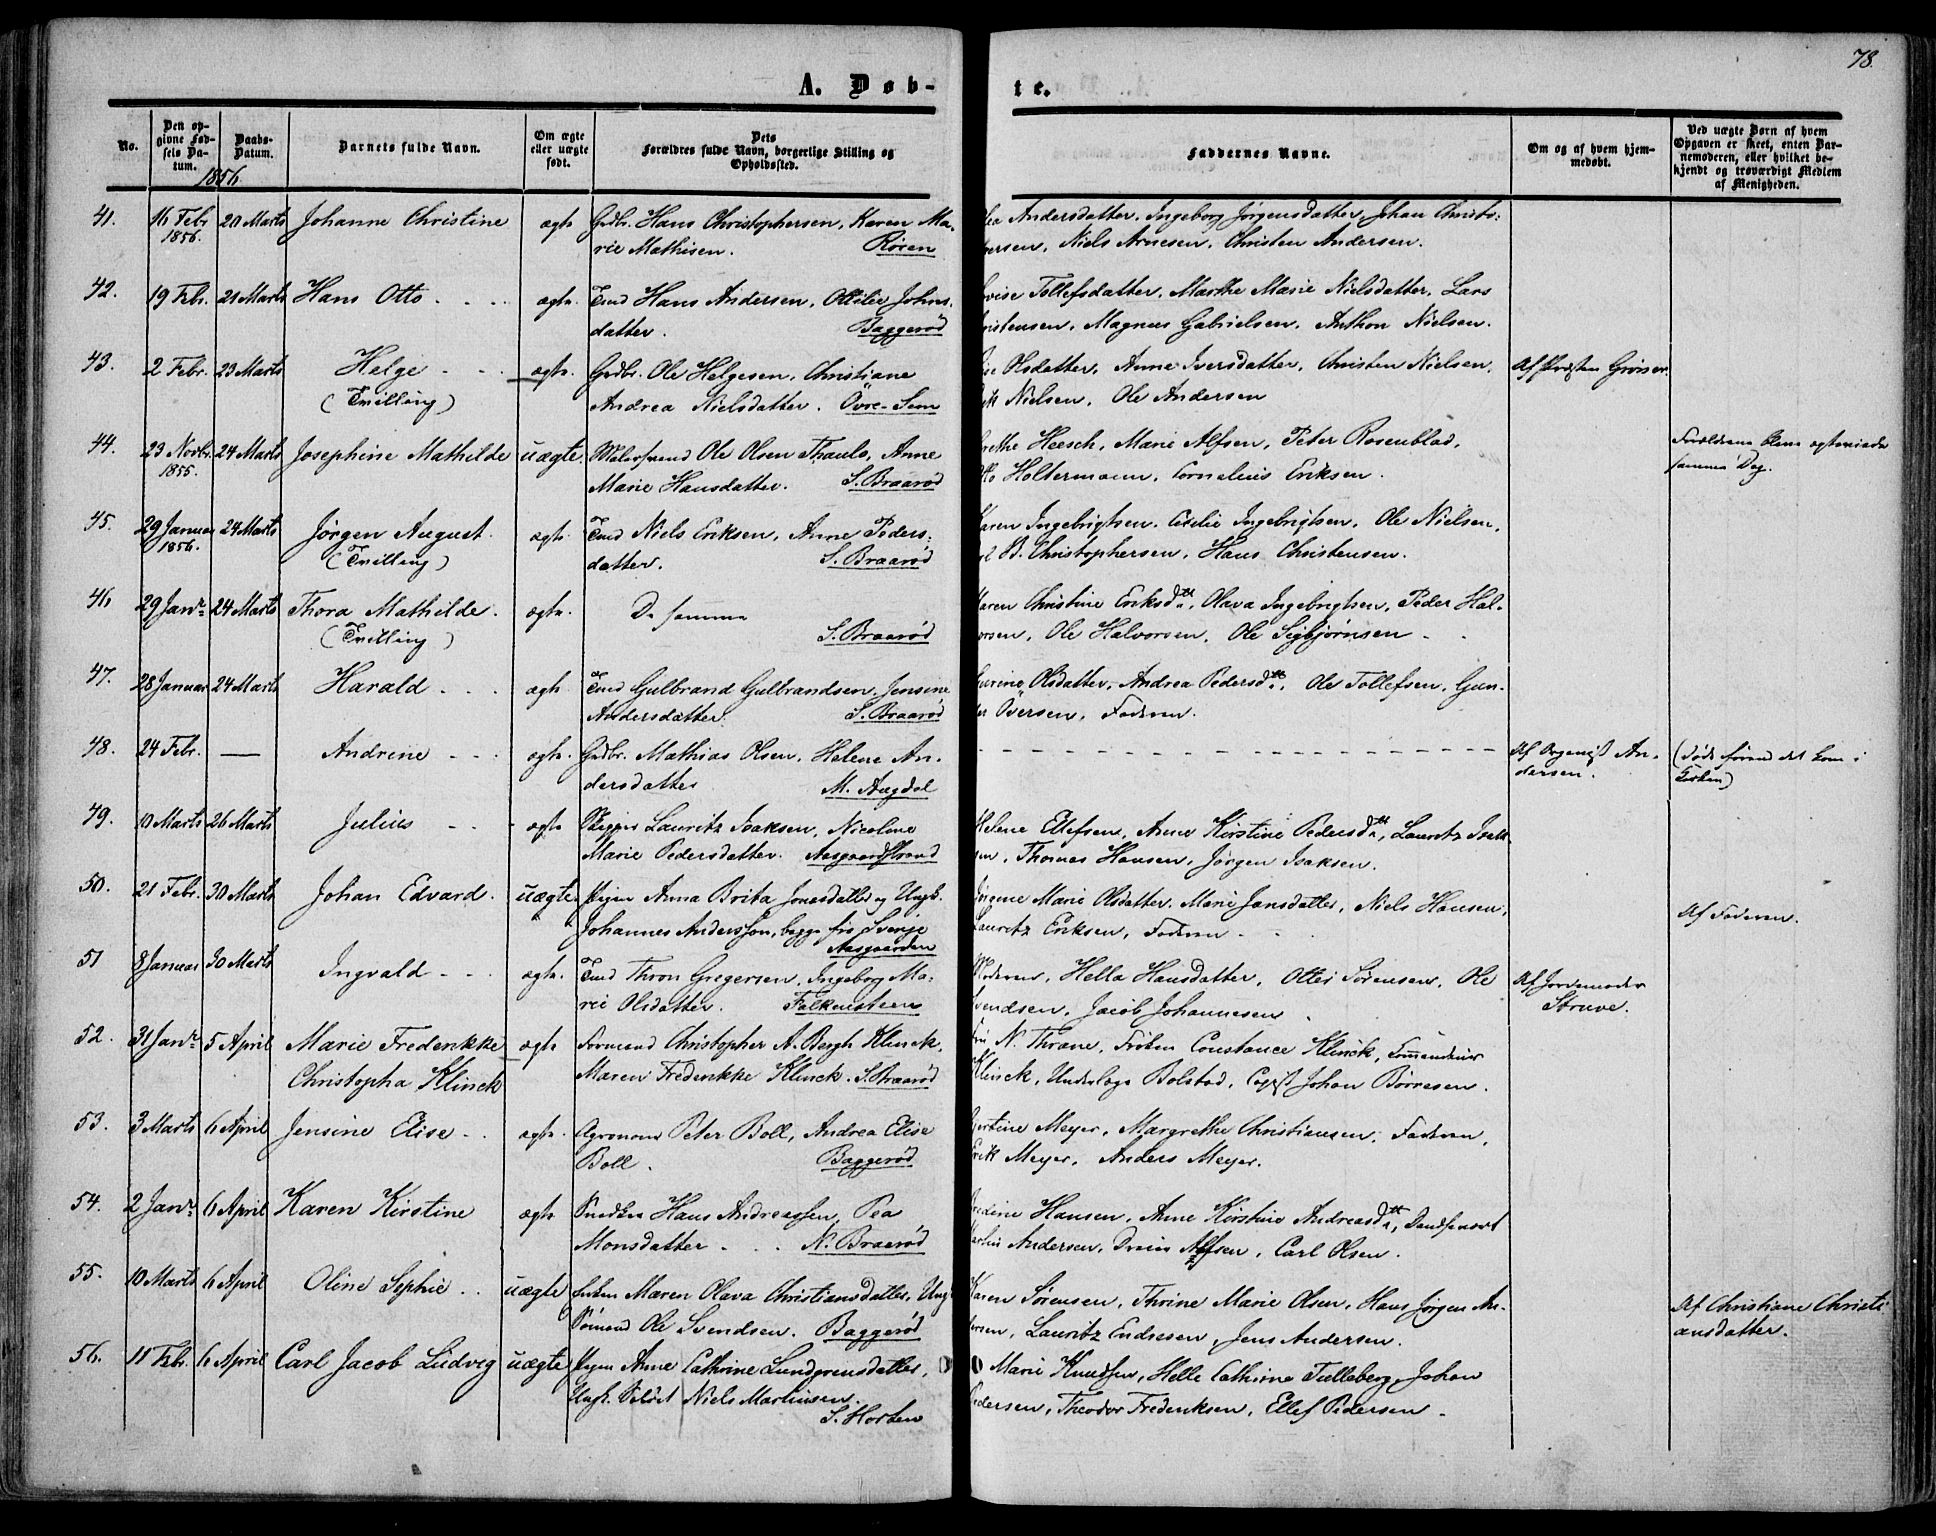 78.
A. Døb-
te.
No.
Den op-
givne Fød-
sels Da-
tum.
Daabs-
Datum.
1856.
Barnets fulde Navn.
Om ægte
eller uægte
født.
Dets
Forældres fulde Navn, borgerlige Stilling og
Opholdssted.
Faddernes Navne.
Om og af hvem hjem-
medøbt.
Ved uægte Børn af hvem
Opgaven er skeet, enten Bar-
nemoderen, eller hvilket be-
kjendt og troværdigt Medlem
af Menigheden.
41. 16 Febr 1856. 20 Marts Johanne Christine ægte Grdbr. Hans Christophersen, Karen Ma-
rie Mathisen. Røren
Andersdatter, Ingeborg Jørgensdatter, Johan Christo-
persen, Niels Arnesen, Christen Andersen.
42. 19 Febr. 21 Marts Hans Otto ægte. Hans Andersen, Ottilie Johns-
datter. Baggerød
Tollefsdatter, Marthe Marie Nielsdatter, Lars
ristensen, Magnus Gabrielsen, Anthon Nielsen.
43. 2 Febr. 23 Marts Helge ægte. Grdbr. Ole Helgesen, Christiane
(Tvilling) Andrea Nielsdatter. Øvre-Sem
Olsdatter, Anne Iversdatter, Christen Nielsen,
Nielsen, Ole Andersen
Af Præsten
44. 23 Novbr. 1855. 24 Marts Josephine Mathilde uægte. Malersvend Ole Olsen Thaulo, Anne
Marie Hansdatter. S. Braarød
Heesch, Marie Alfsen, Peter Rosenblad,
Holtermann, Cornelius Eriksen.
Forældrene bleve ægteviede
samme Dag.
45. 29 Januar 1856. 24 Marts Jørgen August. ægte. Niels Eriksen, Anne Peders-
(Tvilling) datter. S. Braarød
Karen Ingebrigtsen, Cecilie Ingebrigtsen, Ole Nielsen,
B. Christophersen, Hans Christensen.
46 29 Janr. 24 Marts Thora Mathilde. ægte. De samme
(Tvilling) S. Braarød
Maren Christine Eriksdtt., Olava Ingebrigtsen, Peder Hal-
vorsen, Ole Halvorsen, Ole Sigbjørnsen
47. 28 Januar 24 Marts Harald ægte. Gulbrand Gulbrandsen, Jensine
Andersdatter. S. Braarød
Olsdatter, Andrea Pedersdtt., Ole Tollefsen, Gun-
Iversen, Faderen.
48. 24 Febr. — Andrine ægte. Grdbr. Mathias Olsen, Helene An-
dersdatter M. Augdal
Af Organist An-
dersen.
(Død førend det kom i
Kirken)
49. 10 Marts 26 Marts Julius ægte Skipper Lauritz Isaksen, Nicoline
Marie Pedersdatter. Aasgaardstrand
Helene Ellefsen, Anne Kirstine Pedersdtt., Lauritz Isak-
sen, Thomas Hansen, Jørgen Isaksen.
50. 21 Febr. 30 Marts Johan Edvard. uægte. Pigen Anna Brita Jonasdatter og Ungk.
Johannes Andersson, begge fra Sverige
Aasgaarden
Jørgine Marie Olsdatter, Marie Jansdatter, Niels Hansen,
Lauritz Eriksen, Faderen
Af Faderen.
51 8 Januar 30 Marts Ingvald ægte. Thron Gregersen, Ingeborg Ma-
rie Olsdatter. Falkensteen
Moderen, Hella Hansdatter, Otter Sørensen, Ole
Svendsen, Jacob Johannesen
Af Jordemoder
Struve.
52. 31 Janr. 5 April Marie Frederikke ægte Formand Christopher A. Bergh Klinck,
Christopha Klinck Maren Frederikke Klinck. S. Braarød
N. Thrane, Frøken Constance Klinck, Commandeur
Klinck, Underlæge Bolstad, Copist Johan Børresen.
53. 3 Marts 6 April Jensine Elise ægte. Agronom Peter Boll, Andrea Elise
Boll. Baggerød
Meyer, Margrethe Christiansen, Faderen,
Erik Meyer, Anders Meyer.
54. 2 Janr. 6 April Karen Kirstine ægte Snedker Hans Andreassen, Pea
Monsdatter N. Braarød
Hansen, Anne Kirstine Andreasdtt.,
Andersen, Alfsen, Carl Olsen.
55. 10 Marts 6 April Oline Sophie uægte Enken Maren Olava Christiansdatter, Ungk.
Sømand Ole Svendsen. Baggerød
Karen Sørensen, Thrine Marie Olsen, Hans Jørgen An-
dersen, Lauritz Endresen, Jens Andersen.
Af Christiane Christi-
ansdatter.
56. 11 Febr. 6 April Carl Jacob Ludvig uægte Pigen Anne Cathrine Lundgrensdatter,
Ungk. Soldat Niels Martinsen.
S. Horten
Marie Knudsen, Helle Cathrine Tulleberg, Johan
Pedersen, Theodor Frederiksen, Ellef Pedersen